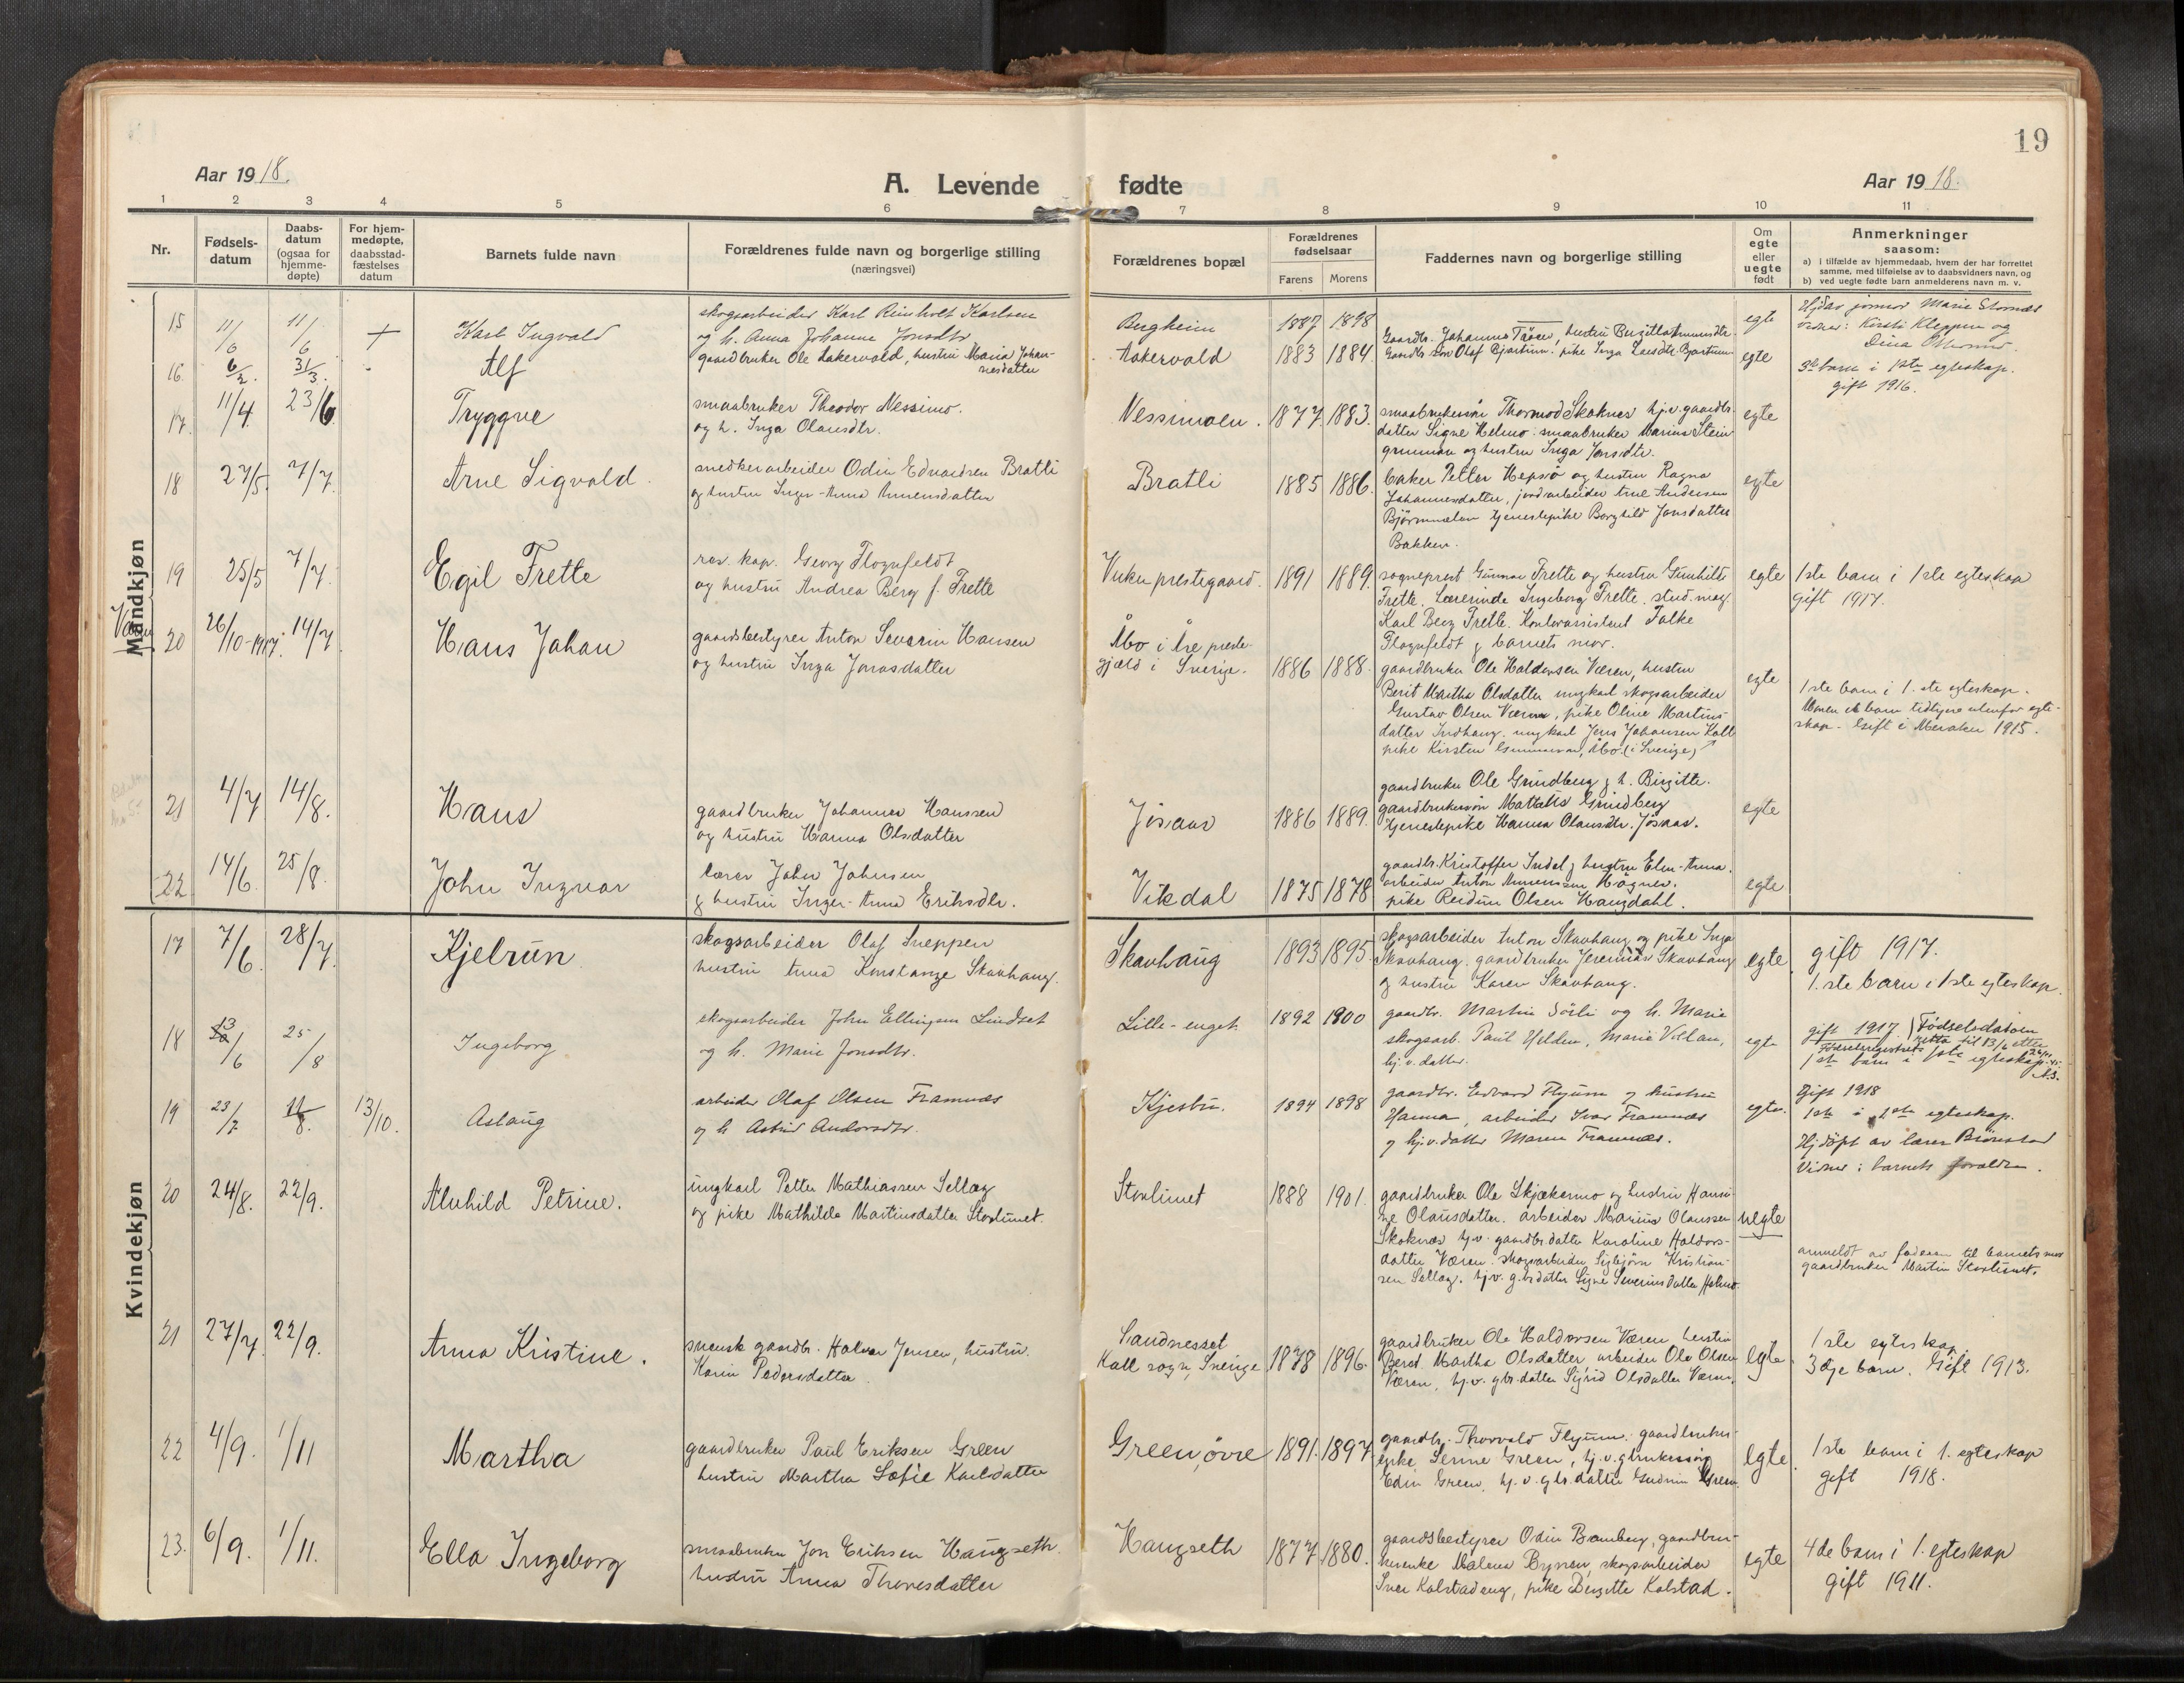 19
Aar 1918.
A. Levende fødte
Aar 1918.
1 2 3 4 5 6 7 8 9 10 11
Nr.
Fødsels-
datum
Daabs-
datum
(ogsaa for
hjemme-
døpte)
For hjem-
medøpte,
daabsstad-
fæstelses
datum
Barnets fulde navn
Forældrenes fulde navn og borgerlige stilling
(næringsvei)
Forældrenes bopæl
Forældrenes
fødselsaar
Farens Morens
Faddernes navn og borgerlige stilling
Om
egte
eller
uegte
født
Anmerkninger
saasom:
a) i tilfælde av hjemmedaab, hvem der har forrettet
samme, med tilføielse av to daabsvidners navn, og
b) ved uegte fødte barn anmelderens navn m. v.
Mandkjøn
15 11/6 11/6 + Karl Ingvald
skogsarbeider Karl Reinholt Karlsen
og h. Anna Johanne Jonsdtr
Bergheim 1887 1898
Gaardbr. Johannes Trøen, hustru
egte
Marie Stornæs
Kirsti Kleppen og
16. 6/2. 31/3. - Alf
gaardbruker Ole Aakervold, hustru Maria Johan-
nesdatter
Aakervold 1883 1884.
egte
3de barn i 1ste egteskap.
gift 1916.
17. 11/4 23/6 Tryggve
smaabruker Theodor Nessimo.
og h. Inga Olausdtr.
Nessimoen. 1877. 1883.
smaabrukersøn Thormod Skoknes hj.v. gaardbr.
datter Signe Helmo. smaabruker Marius Stein
grunnan og hustru Inga Jonsdtr.
egte
18 27/5. 7/7. Arne Sigvald.
snedkerarbeider Odin Edvardsen Bratli
og hustru Inger-Anna Annensdatter
Bratli 1885 1886.
baker Petter Hepsø og hustru Ragna
Johannesdatter, jordarbeider Arne Andersen
Bjørnmelen tjenestepike Borghild Jonsdatter
Bakken.
egte
19 25/5 7/7. Egil Frette
res. kap. Georg Flognfeldt
og hustru Andrea Berg f. Frette
Vuku prestegaard. 1891 1889.
sogneprest Gunnar Frette og hustru Gunhilde
Frette. Lærerinde Ingeborg Frette. stud. mag.
Karl Berg Frette. Kontorassistent Falke
Flognfeldt & barnets mor.
egte
1ste barn i 1ste egteskap
Gift 1917.
20 26/10-1917. 14/7 Hans Johan
gaardsbestyrer Anton Severin Hansen
og hustru Inga Jonasdatter
Åbo i Åre preste-
gjæld i Sverige. 1886 1888.
gaardbruker Ole Haldorsen Væren, hustru
Berit Martha Olsdatter ungkarl skogsarbeider
Gustav Olsen Væren, pike Oline Martins-
datter Indhaug. ungkarl Jens Johansen Kall
pike Kirsten Gunnarson, Åbo. (i Sverige)
egte
1ste barn i 1.ste egteskap.
Moren et barn tidligere utenfor egte-
skap. Gift i Meraker 1915.
21 4/7 14/8. Hans
gaardbruker Johannes Hanssen
og hustru Hanna Olsdatter
Jøsaas 1886 1889.
gaardbruker Ole Grindberg & h. Birgitte.
gaardbrukersøn Mathias Grindberg
tjenestepike Hanna Olausdtr. Jøsaas.
egte
22 14/6. 25/8. John Ingvar
lærer John Johnsen
& hustru Inger-Anna Eriksdtr.
Vikdal 1875 1878
gaardbr. Kristoffer Indal & hustru Elen-Anna.
arbeider Anton Annensen Hognes.
pike Reidun Olsen Haugdahl.
egte
Kvindekjøn
17 7/6. 28/7. Kjelrun
skogsarbeider Olaf Sneppen
hustru Anna Konstanze Skavhaug.
Skavhaug 1893 1895.
skogsarbeider Anton Skavhaug og pike Inga
Skavhaug. gaardbruker Jeremias Skavhaug
og hustru Karen Skavhaug.
egte.
gift 1917.
1.ste barn i 1ste egteskap.
18 13/6 25/8 Ingeborg
skogsarbeider John Ellingsen Lindset
og h. Marie Jonsdtr.
Lille-enget 1892 1900
gaardbr. Martin Sørli og h. Marie
skogsarb. Paul Helden, Marie Vollan,
hj.v. datter.
egte
gift 1917. Fødselsdatoen
rettet til 13/6 efter
Fødselsregisteret
1ste barn i 1ste egteskap.
19 23/7 11/8. 13/10. Aslaug
arbeider Olaf Olsen Framnes
og h. Astrid Andorsdtr.
Kjesbu. 1894 1898
gaardbr. Edvard Flyum og hustru
Hanna, arbeider Ivar Framnæs
og hj.v. datter Maren Framnæs.
egte.
Gift 1918
1ste i 1ste egteskap.
Hj.døpt av lærer Bjørnstad
Vidner: barnets forældre.
20 24/8. 22/9. Alvhild Petrine.
ungkarl Petter Mathiassen Selleg
og pike Mathilde Martinsdatter Storlunet.
Storlunet 1888 1901.
gaardbruker Ole Skjækermo og hustru Hansi-
ne Olausdatter. arbeider Marius Olaussen
Skoknæs hj.v. gaardbr.datter Karoline Haldors-
datter Væren. skogsarbeider Sigbjørn Kristian-
sen Selleg. hj.v. g.b.datter Signe Severinsdatter Helmo.
uegte
anmeldt av faderen til barnets mor
gaardbruker Martin Storlunet.
21 27/7. 22/9. Anna Kristine.
svensk gaardbr. Halvar Jensen, hustru.
Karin Pedersdatter.
Sandnesset
Kall sogn, Sverige 1878 1896.
gaardbruker Ole Haldorsen Væren hustru
Berit Martha Olsdatter, arbeider Ole Olsen
Væren, hj.v. gbr.datter Sigrid Olsdatter Væren.
egte.
1ste egteskap.
3dje barn. Gift 1913.
22 4/9. 1/11 Martha
gaardbruker Paul Eriksen Green
hustru Martha Sofie Karlsdatter
Green, øvre 1891. 1897
gaardbr. Thorvald Flyum. gaardbruker-
enke Serine Green, hj.v. gbrukersøn
Edin Green, hj.v. gbr.datter Gudrun Green.
egte.
1ste barn i 1. egteskap
gift 1918.
23. 6/9. 1/11. Ella Ingeborg
smaabruker Jon Eriksen Haugseth.
hustru Anna Thoresdatter
Haugseth 1877 1880.
gaardsbestyrer Odin Bramberg, gaardbru-
kerenke Malena Bynæs, skogsarbeider
Iver Kolstadeng, pike Birgitte Kolstad.
egte
4de barn i 1. egteskap
gift 1911.